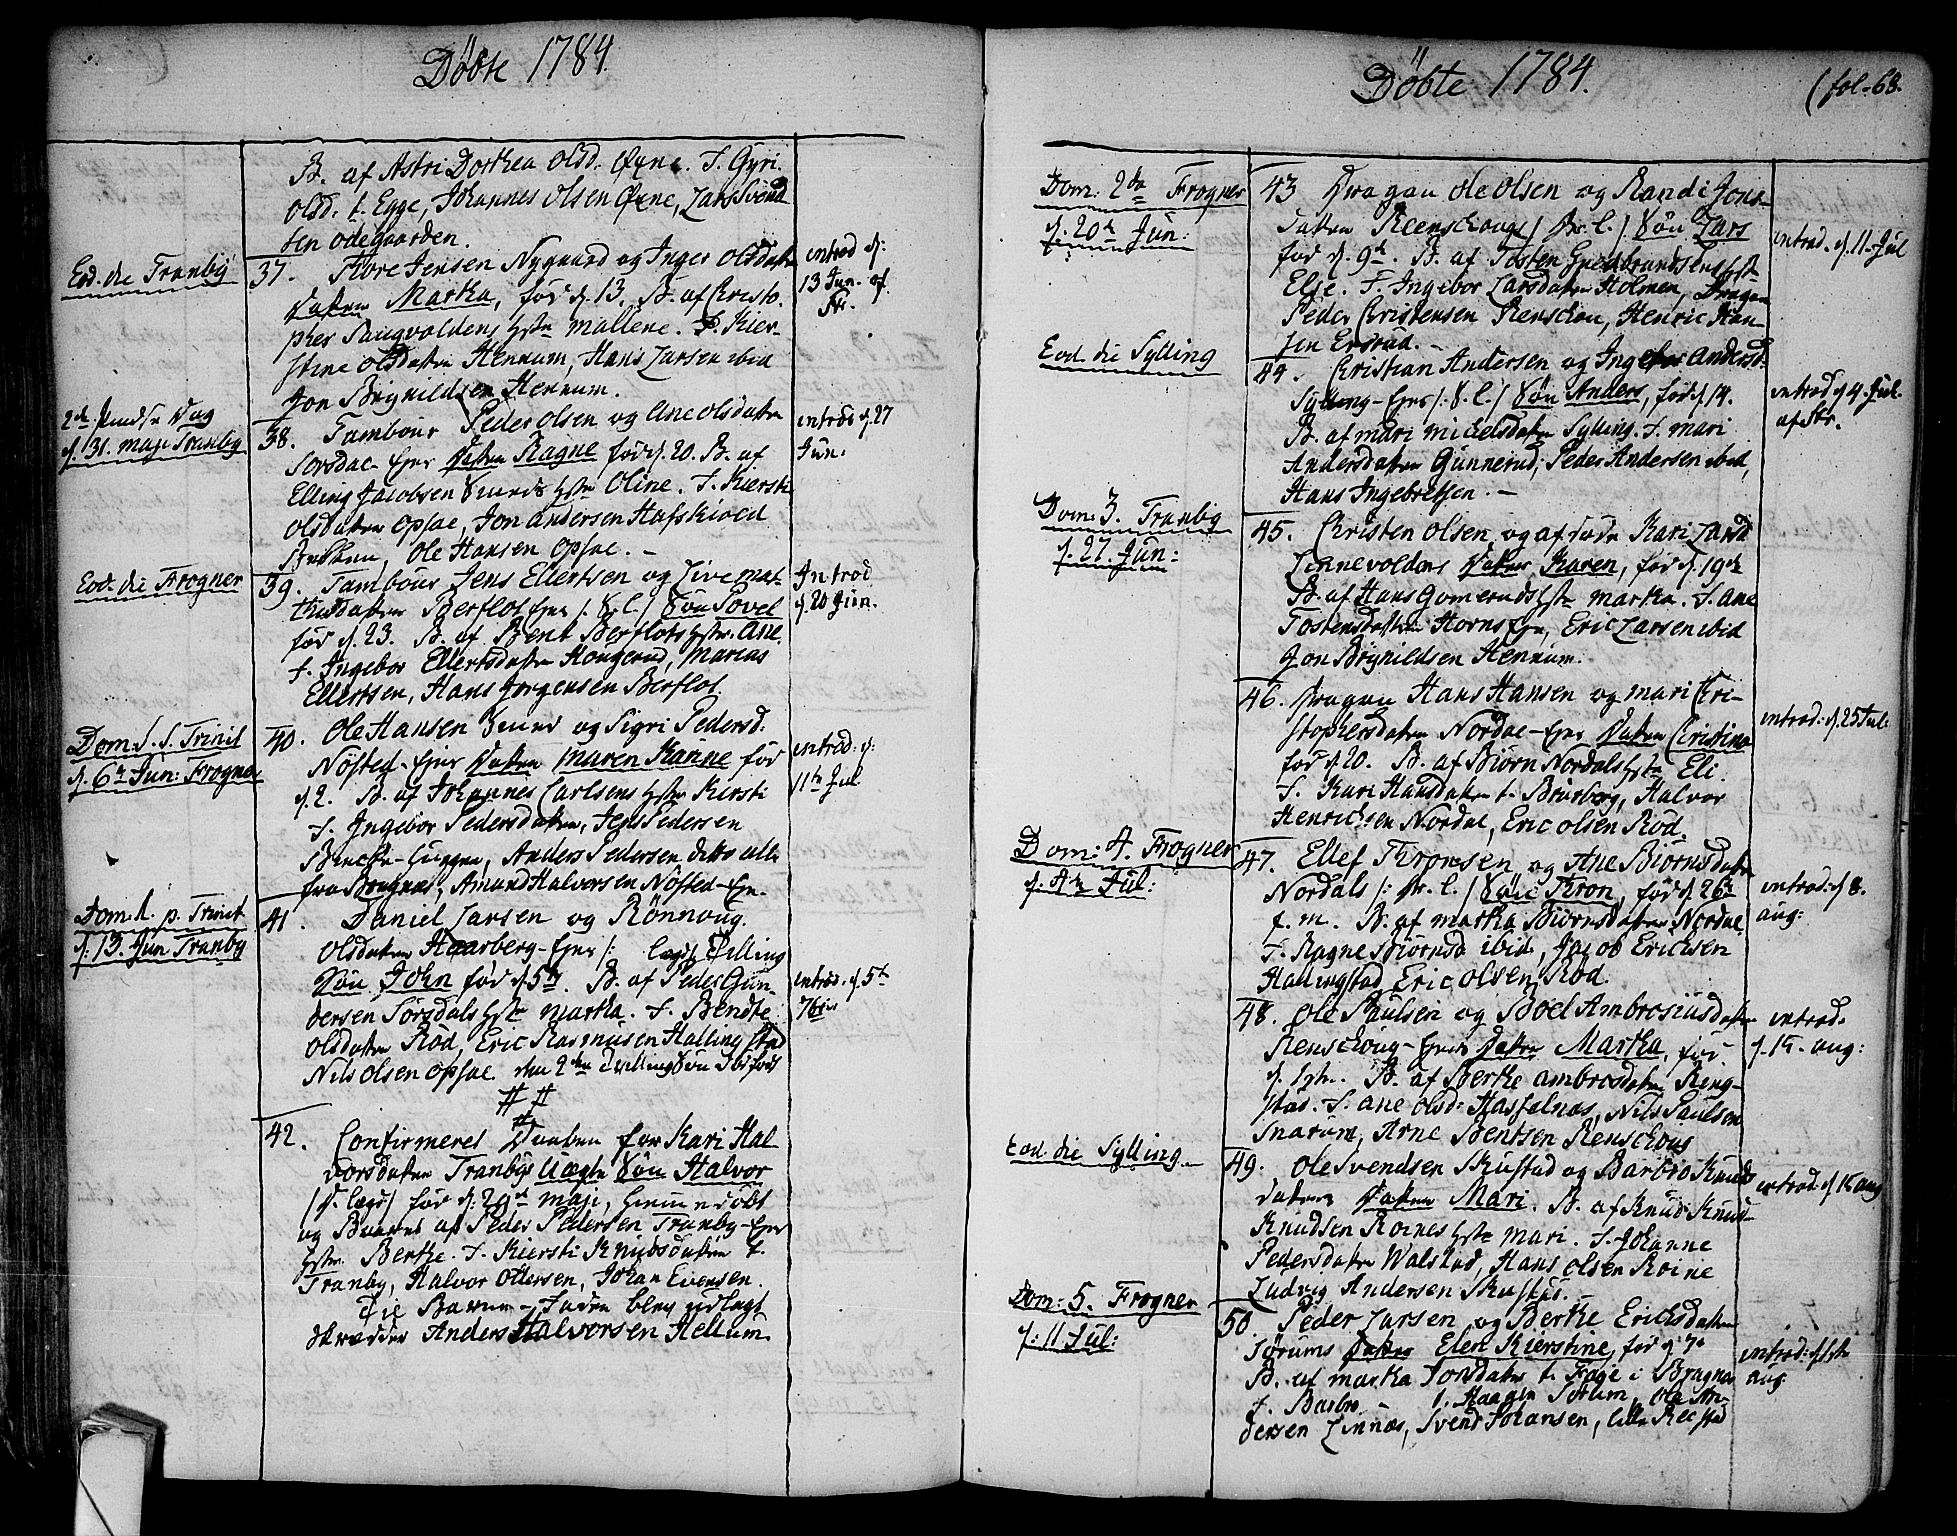 Döbte 1784.
B. af Astri Dorthea Olsd. Øxne. F. Gyri
Olsd. t. Egge, Johannes Olsen Øxne, Lars Svend
sen Ödegaarden.
Eod. die Tranby
37. Tore Jensen Nygaard og Inger Olsdatter
Datter Martha, föd d. 13. B. af Christo-
pher Paugvoldens Hstr Mallene. F. Kier-
stine Olsdatter Hennum, Hans Larsen ibid
Jon Brynildsen Hennum.
introd d:
13 Jun. af
Str.
2den Pindse Dag
d. 31. Maji Tranby
38. Tambour Peder Olsen og Ane Olsdatter
Sörsdal-Ejer Datter Ragne föd d. 20. B. af
Elling Jacobsen Hstr Oline. F. Kiersti
Olsdatter Opsal, Jon Andersen Hafskiold
Bakken, Ole Hansen Opsal. -
introd d. 27
Jun.
Eod. die Frogner
39. Tambour Jens Ellertsen og Live Mat-
thisdatter Berflot Ejer /: S. L. / Sön Povel
föd d. 23. B. af Bent Berflots Hstr. Ane
F. Ingebor Ellertsdatter Hougerud, Marius
Ellertsen, Hans Jorgensen Berflot
Introd
d. 20 Jun.
Dom. S. S. Trinit
d. 6te Jun: Frogner
40. Ole Hansen og Sigri Pedersd.
Nösted-Ejer Datter Maren Hanne föd
d. 2. B. af Johannes Carlsens Hstr Kiersti
F. Ingebor Pedersdatter, Jens Pedersen
Anders Pedersen ditto alle
fra Bragnæs, Amund Halversen Nösted-Ejer.
introd. d:
11te Jul
Dom. 1. p. Trinit
d. 13. Jun Tranby
41. Daniel Larsen og Rönnoug
Olsdatter Haarberg-Ejer /: Tvilling
Sön John föd d. 5te. B. af Peder Gun-
dersen Sörsdals Hstr Martha. F. Bendte
Olsdatter Röd, Eric Rasmusen Hallingstad
Nils Olsen Opsal. den 2den Tvilling Sön
introd. d. 5te
7br
# #
#
42. Confirmeret Daaben for Kari Hal
vorsdatter Tranbys Uægte Sön Halvor
föd d: 29de Maji, hjemmedöbt
og Baaret af Peder Pedersen Tranby-Ejer
Hstr. Berthe. F. Kiersti Knudsdatter t.
Tranby, Halvor Ottersen, Johan Evensen.
Til Barne-Fader blev udlagt
Skrædder Anders Halvorsen Hellum.
Döbte 1784.
(fol. 68.
Dom: 2da Frogner
d. 20de Jun:
43 Dragon Ole Olsen og Randi Jons-
datter Reenschougs / Sön Lars
föd d. 9de. B. af Tosten Gulbrandsens Hstr
Else. F. Ingebor Larsdatter Holmen, Dragon
Peder Christensen Renschou, Henric Han-
sen Ersrud. -
introd. d. 11. Jul
Eod. die Sylling
44. Christian Andersen og Ingebor Andersd.
Sylling-Ejer /: S. L. / Sön Anders, föd d. 14.
B. af Mari Michelsdatter Sylling. F. Mari
Andersdatter Gunnerud, Peder Andersen ibid,
Hans Ingebretsen. -
introd d. 4. Jul.
af Str.
Dom: 3. Tranby
d. 27 Jun:
45. Christen Olsen og afdöde Kari Larsd
Linnevoldens Datter Karen, föd d. 19de
B. af Hans Gomeruds Hstr Martha. F. Ane
Tostensdatter Horns Ejer, Eric Larsen ibid
Jon Brynildsen Hennum.
46. Dragon Hans Hansen og Mari Chri-
stophersdatter Nordal-Ejer Datter Christine
föd d. 20. B. af Biörn Nordals Hstr Eli.
F. Kari Hansdatter t. Braarberg, Halvor
Henrichsen Nordal, Eric Olsen Röd.
introd: d. 25 Jul:
Dom: 4. Frogner
d: 4de Jul:
47. Ellef Thronsen og Ane Biörnsdatter
Nordals /: S. L. / Sön Thron, föd d. 26de
f. m. B. af Martha Biörnsdatter Nordal
F. Ragne Biörnsd ibid, Jacob Ericksen
Hallingstad Eric Olsen Röd.
introd: d 8.
aug:
48. Ole Paulsen og Boel Ambrosiusdatter
Renschoug-Ejer Datter Martha, föd
d. 1ste. B. af Berthe Ambrosdatter Ring-
stad. F. Ane Olsd: Hasselnæs, Nils Paulsen
Snarum, Arne Bentsen Renschoug
introd.
d. 15. aug:
Eod. die Sylling -
49. Ole Svendsen Skustad og Barbro Knuds
datters Datter Mari. B. af Knud Knud-
Knudsen Roines Hstr Mari. F. Johanne
Pedersdatter Walstad, Hans Olsen Roine
Ludvig Andersen Skustad.
introd. d. 15 aug
Dom: 5. Frogner
d: 11 Jul:
50. Peder Larsen og Berthe Ericksdatter
Jörums Datter Elen Kierstine, föd d: 7de
B. af Martha Torsdatter t. Foge i Bragnæs
F. Barbro - t. Haagen Jörum, Ole An-
dersen Linnæs, Svend Johansen, lille Regstad
introd: d 1ste
aug